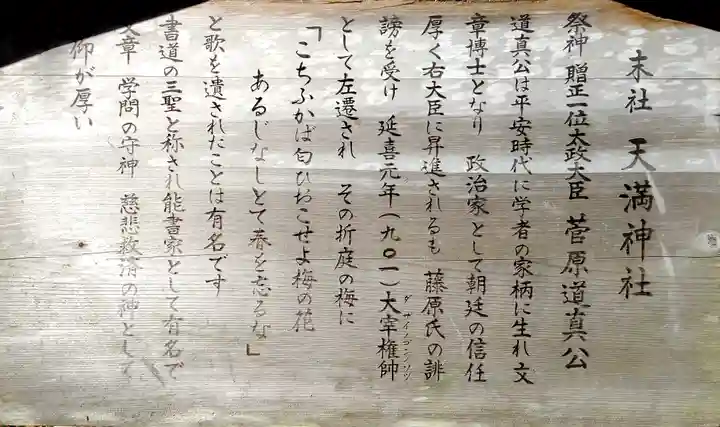 末社 天満神社
祭神 贈正一位太政大臣 菅原道真公
道真公は平安時代に学者の家柄に生れ文
章博士となり 政治家として朝廷の信任
厚く右大臣に昇進されるも 藤原氏の誹
謗を受け 延喜元年(九〇一)大宰権帥
ダザイゴンノソツ
として左遷され その折庭の梅に
「こちふかば匂ひおこせよ梅の花
あるじなしとて春を忘るな」
と歌を遺されたことは有名です
書道の三聖と称され能書家として有名で
文章 学問の守神 慈悲救済の神として
仰が厚い